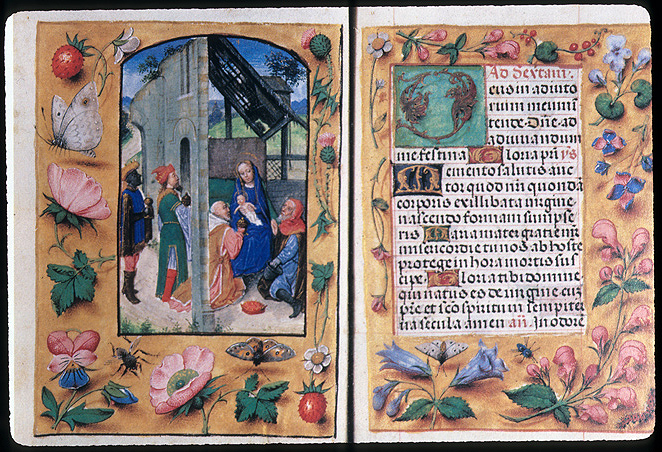 Ad Sextam.
Deus in adiuto
rium meum in
tende. Dñe ad
adiuuandum
me festina Gloria pri ys
Memento salutis auc
tor quod nri quonda
corporis ex illibata uirgine
nascendo formam sumpse
ris Maria mater gratie mr̃
misericordie tu nos ab hoste
protege in hora mortis sus
cipe Gloria tibi domine
qui natus es de uirgine cu p̃
pre et sco spiritu in sempiter
na secula amen añ. In odore